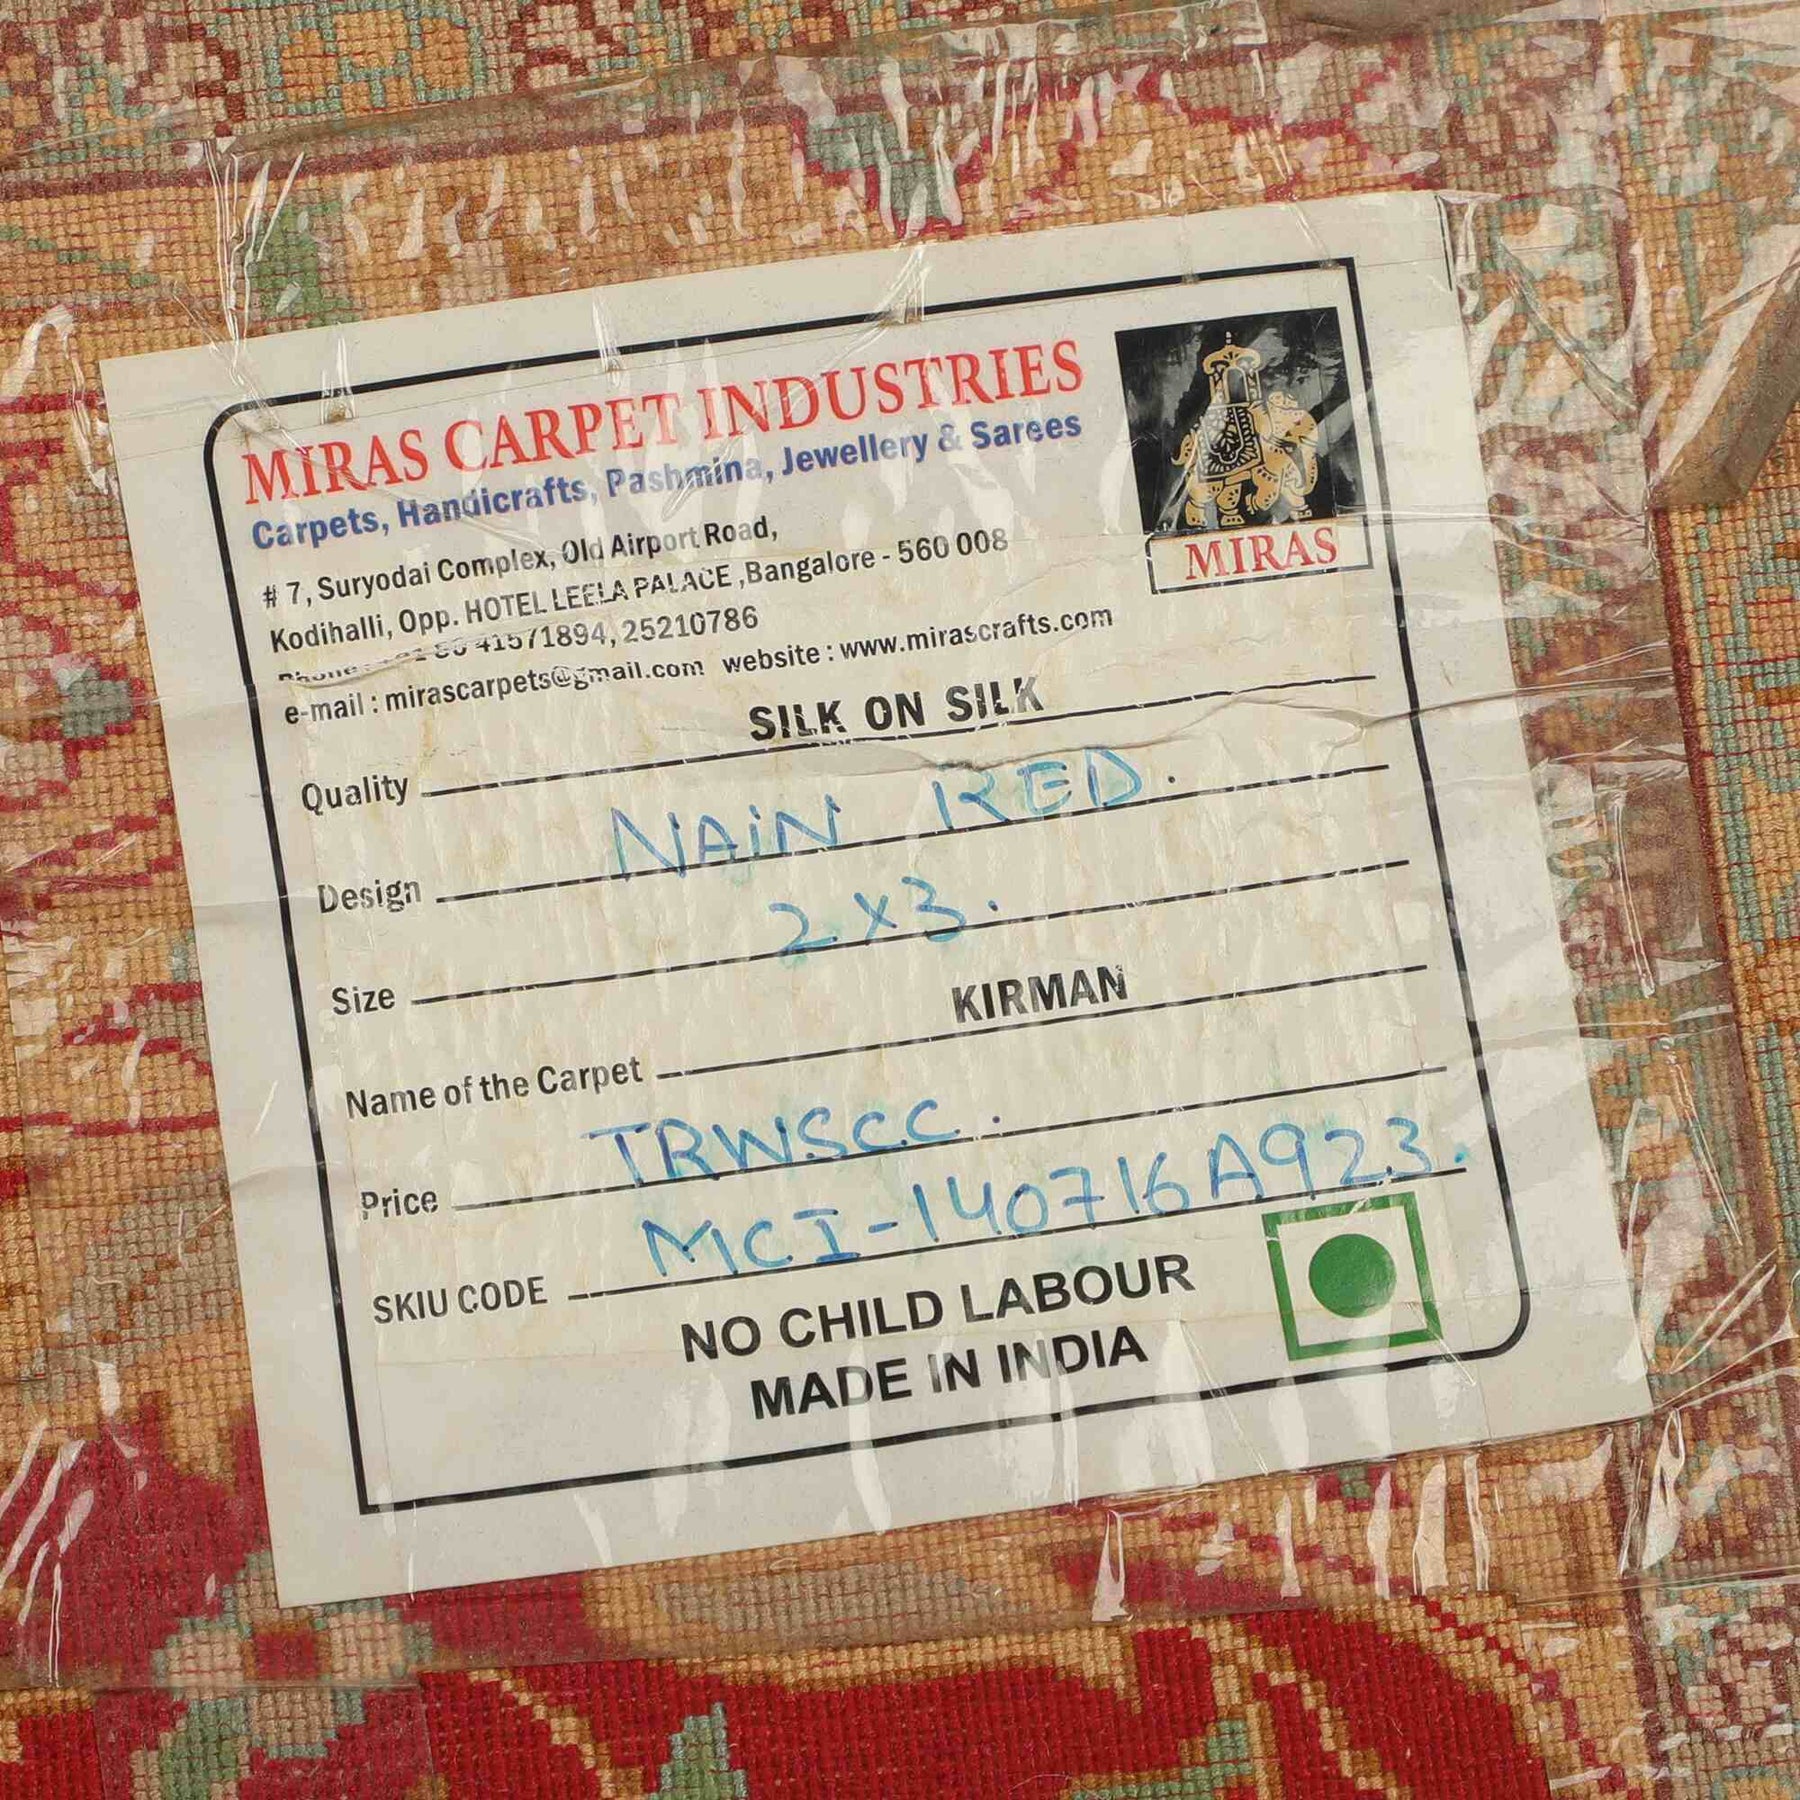 MIRAS CARPET INDUSTRIES
Carpets, Handicrafts, Pashmina, Jewellery & Sarees
# 7, Suryodai Complex, Old Airport Road,
Kodihalli, Opp. HOTEL LEELA PALACE ,Bangalore - 560 008
Phone: +91 80 41571894, 25210786
e-mail : mirascarpets@gmail.com website : www.mirascrafts.com
MIRAS
Quality SILK ON SILK
Design NAIN RED.
Size 2 x 3.
Name of the Carpet KIRMAN
Price TRWSCC.
SKIU CODE MCI-140716A923.
NO CHILD LABOUR
MADE IN INDIA